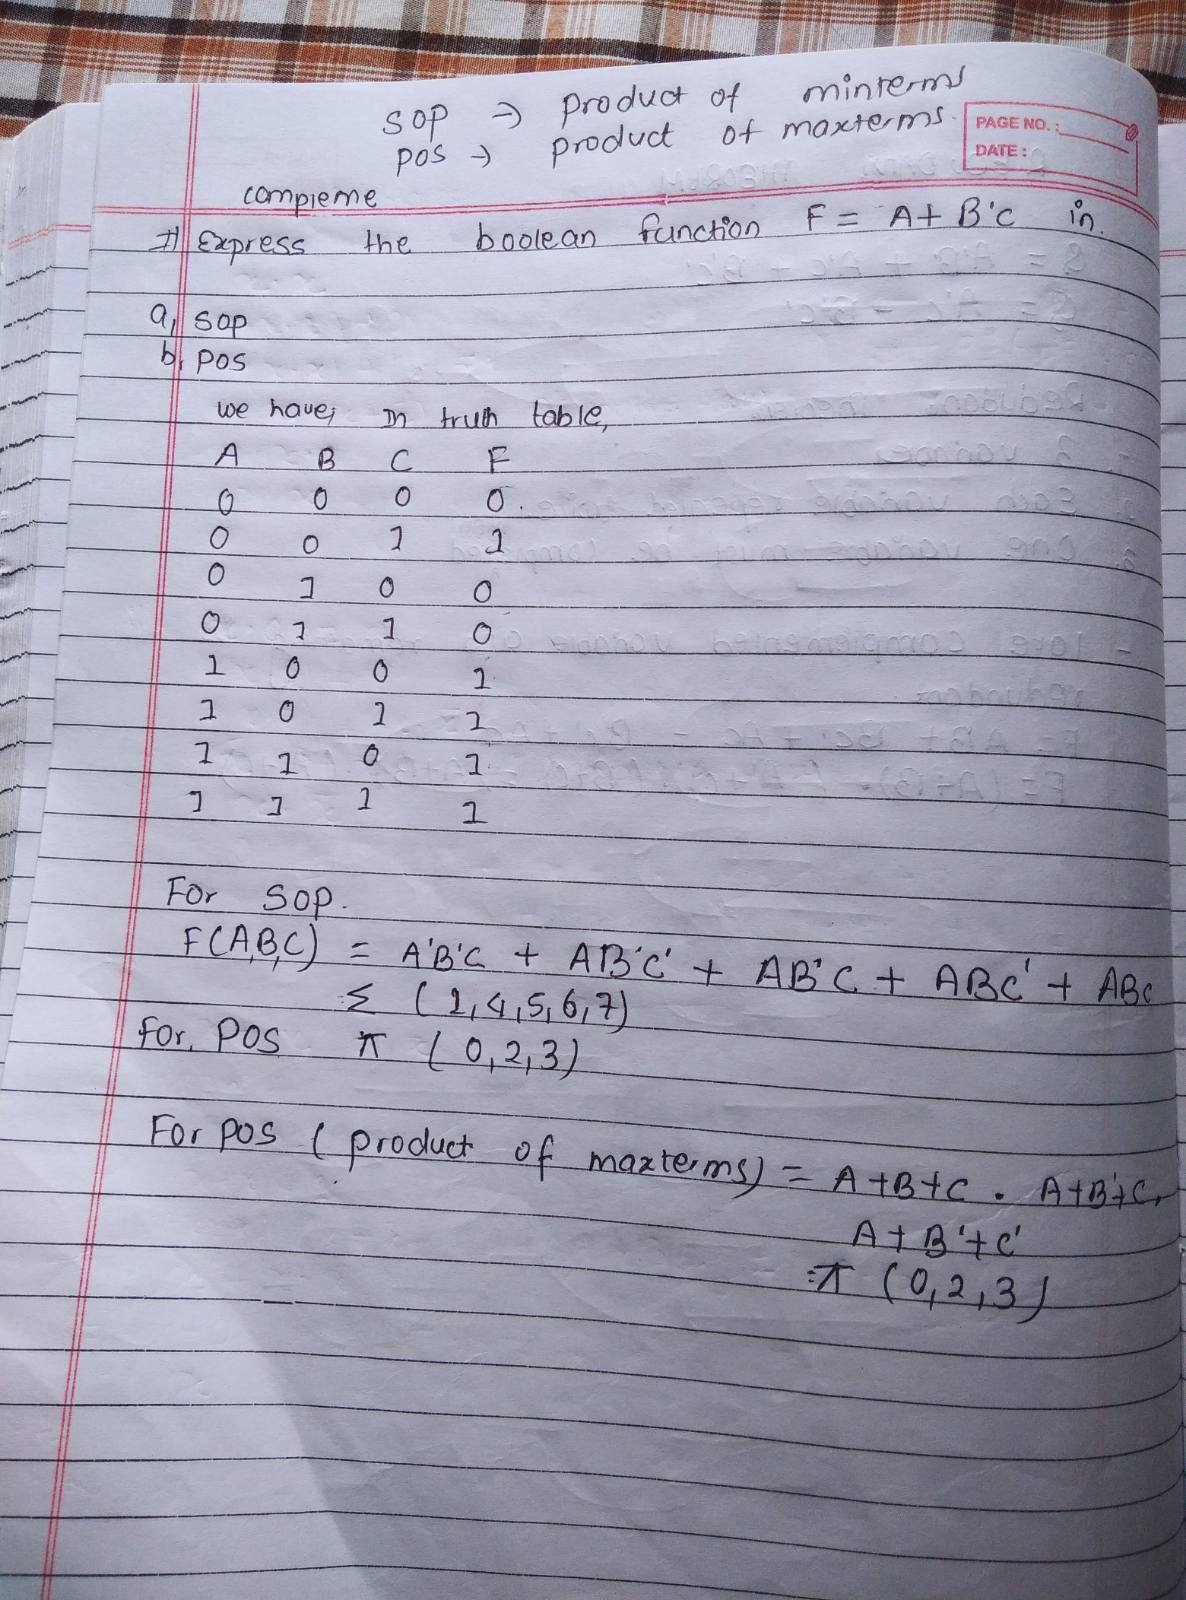 SOP → product of minterms
POS → product of maxterms.
PAGE NO.:
DATE:
compleme
# Express the boolean function F = A + B'C in.
a, SOP
b, POS
we have, In truth table,
A B C F
0 0 0 0.
0 0 1 1
0 1 0 0
0 1 1 0
1 0 0 1
1 0 1 1
1 1 0 1
1 1 1 1
For SOP.
F(A,B,C) = A'B'C + AB'C' + AB'C + ABC' + ABC
= Σ (1,4,5,6,7)
for, POS π (0,2,3)
For POS (product of maxterms) = A+B+C . A+B'+C.
A+B'+C'
= π (0,2,3)